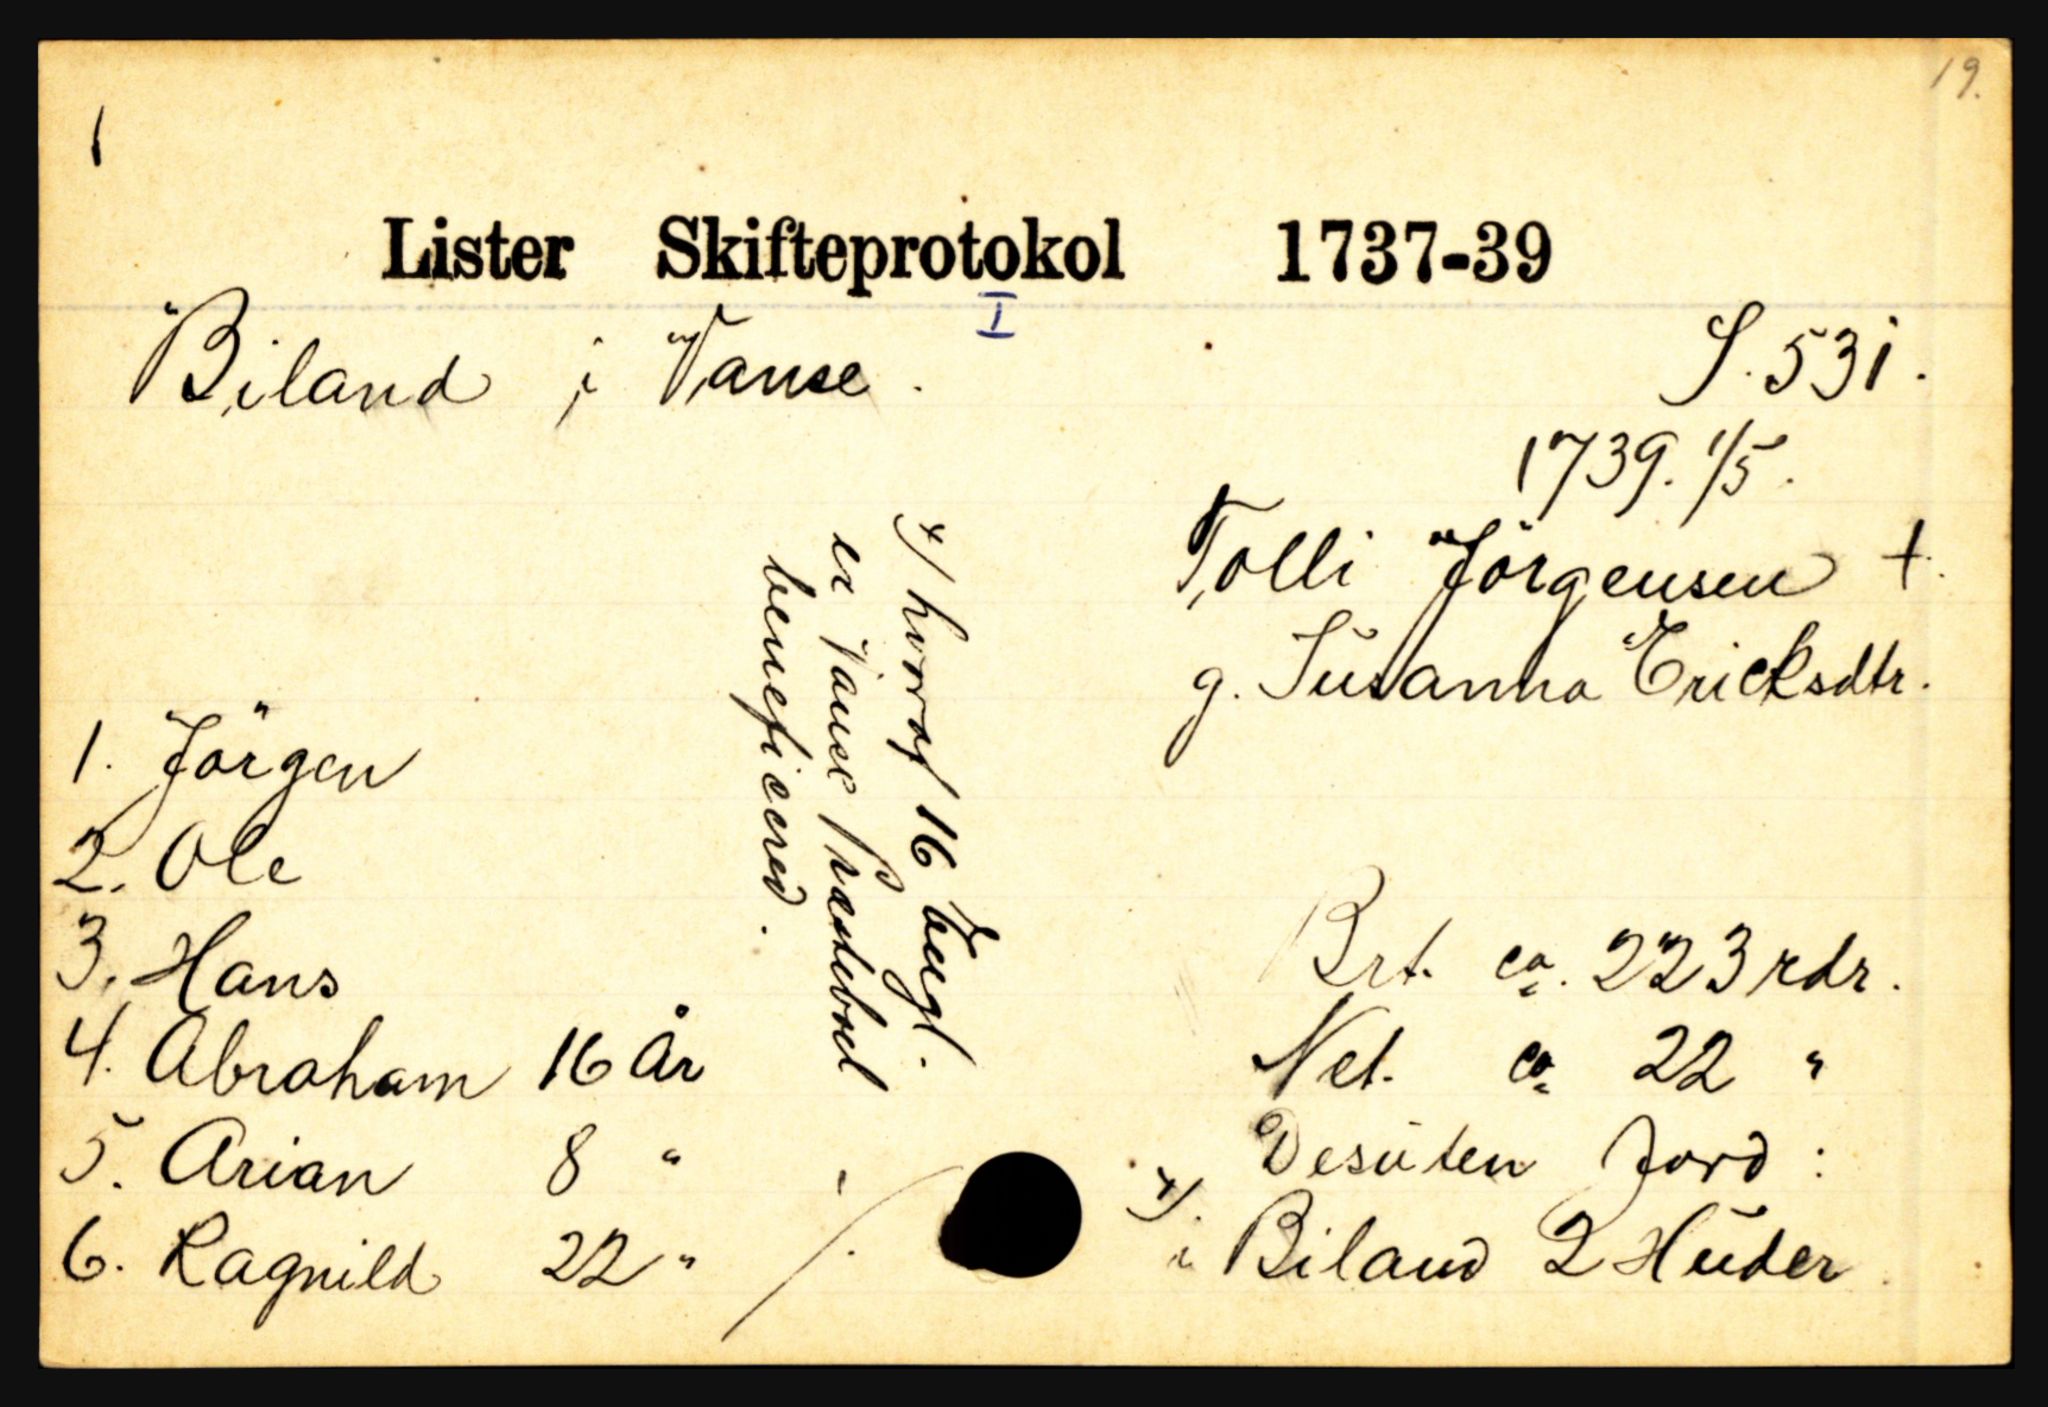 19.
1
Lister Skifteprotokol 1737-39
I
Biland i Vanse.
S. 531.
1739. 1/5.
Tolli Jörgensen +.
g. Susanna Ericksdtr.
1. Jörgen
2. Ole
3. Hans
4. Abraham 16 År
5. Arian 8 "
6. Ragnild 22 " /.
x) hvoraf 16 Eugl.
er Vanse Præstebol
beneficered.
Brt. ca. 223 rdr.
Net. ca 22 "
Desuten Jord:
x). i Biland 2 Huder